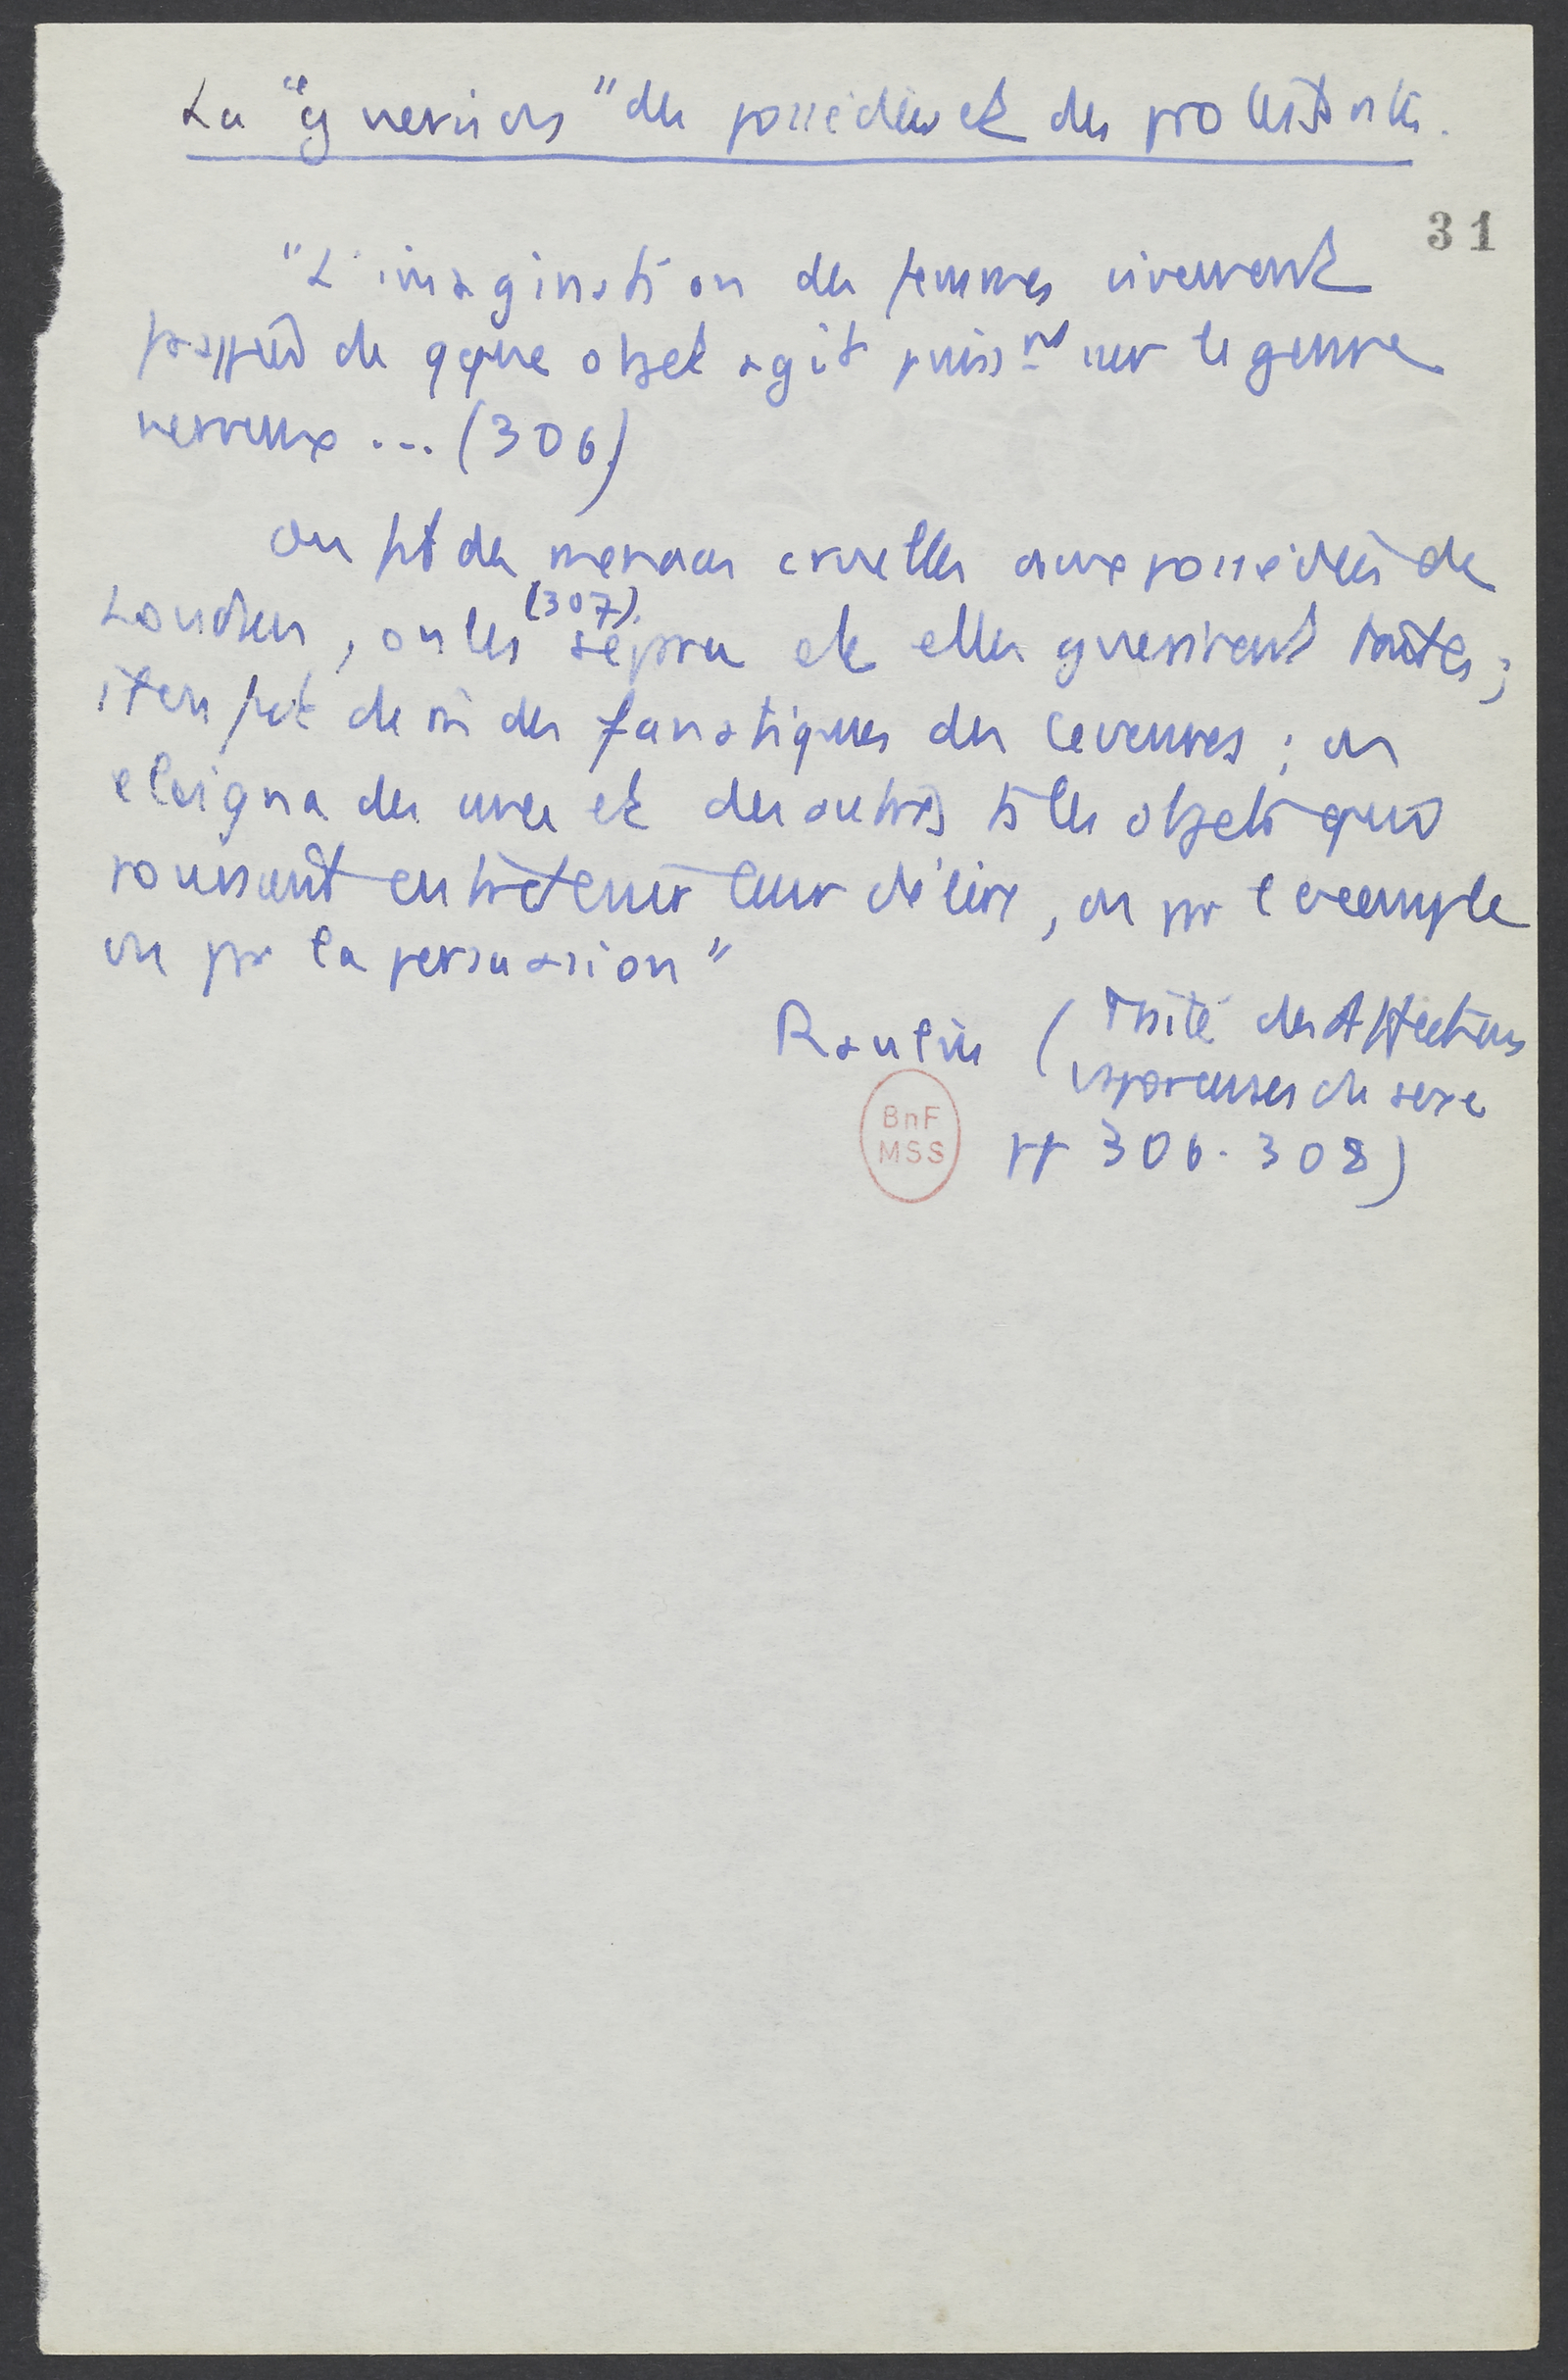 La "guerison" des possédées et des protestants.
31
"L'imagination des femmes vivement
frappée de qque objet agit puissmt sur le genre
nerveux ... (306)
On fit des menaces cruelles aux possédées de
Loudun, on les (307) sépara et elles guerirent toutes ;
il en fut de m des fanatiques des Cevennes ; on
eloigna des unes et des autres ts les objets qui
pouvaient entretenir leur délire, ou pr l exemple
ou pr la persuasion"
Raulin (Traité des Affections
vaporeuses du sexe
BnF
MSS
pp 306-308)